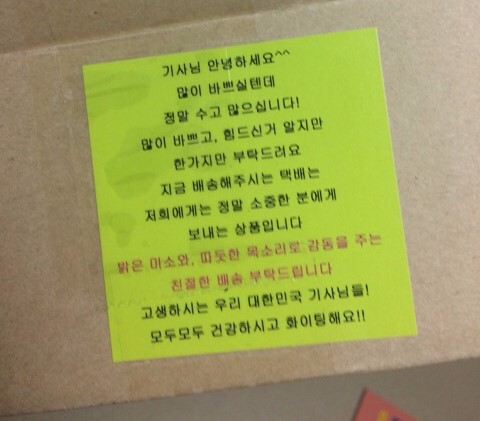 기사님 안녕하세요^^
많이 바쁘실텐데
정말 수고 많으십니다!
많이 바쁘고, 힘드신거 알지만
한가지만 부탁드려요
지금 배송해주시는 택배는
저희에게는 정말 소중한 분에게
보내는 상품입니다
밝은 미소와, 따듯한 목소리로 감동을 주는
친절한 배송 부탁드립니다
고생하시는 우리 대한민국 기사님들!
모두모두 건강하시고 화이팅해요!!